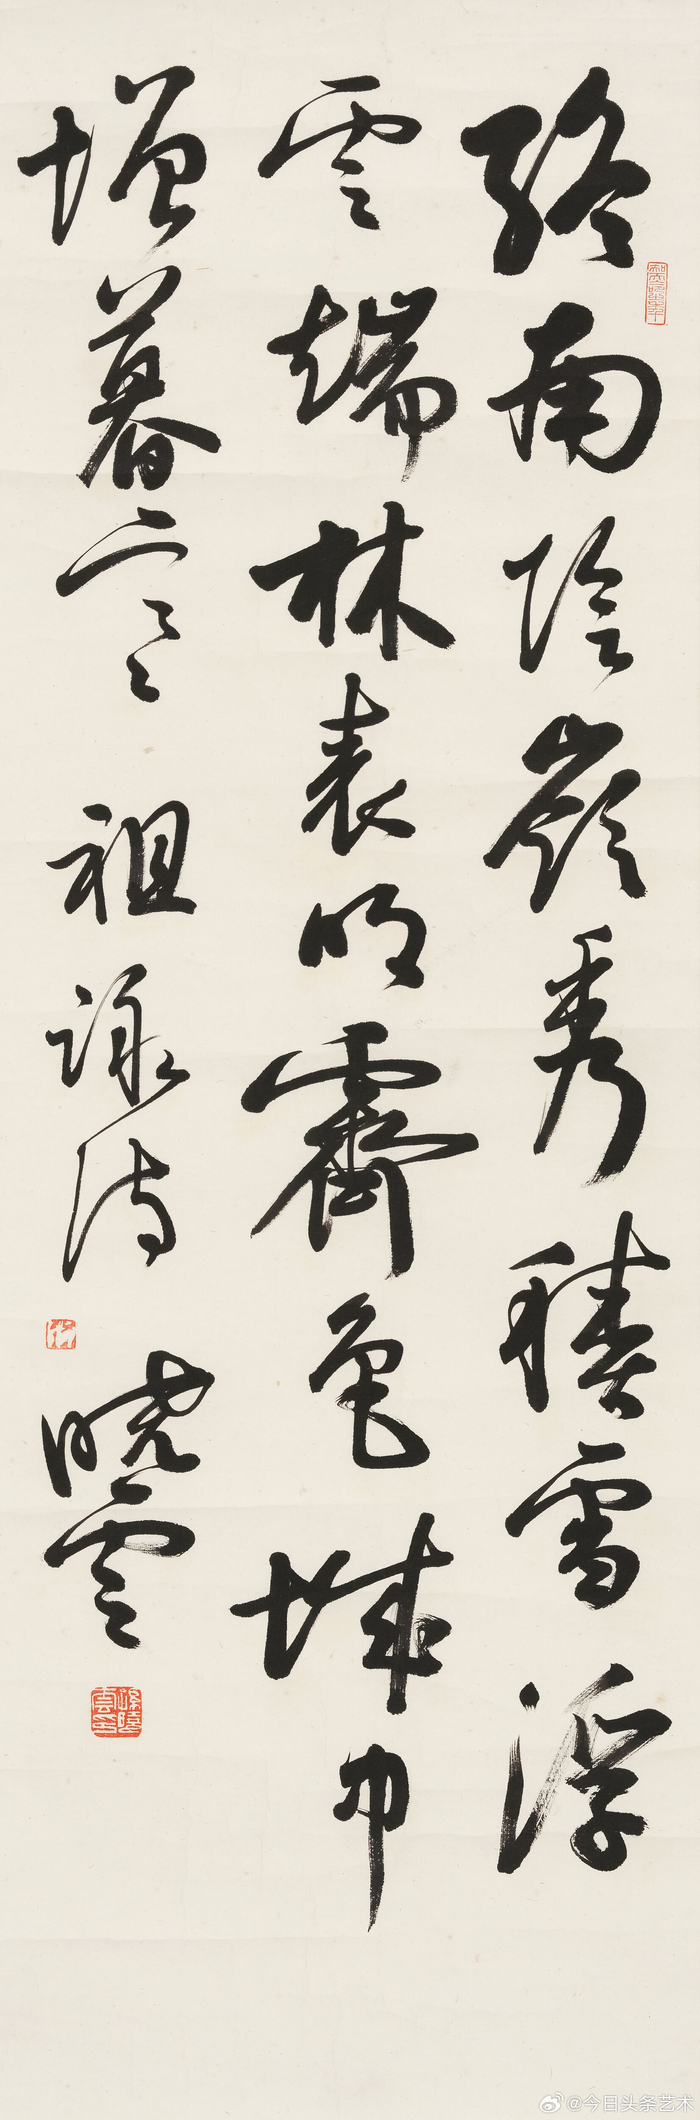 终南阴岭秀积雪浮
云端林表明霁色城中
增暮寒 祖咏诗 晓云
孙晓云印
@今日头条艺术